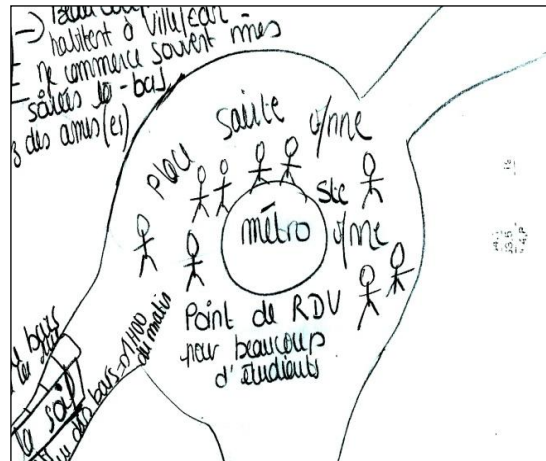 habitent à Villejean
ne commence souvent mes
soirées là-bas
des amies (es)
place sainte Anne
métro Ste Anne
Point de RDV
pour beaucoup
d'étudiants
bars
la soif
des bars → 1H00
du matin